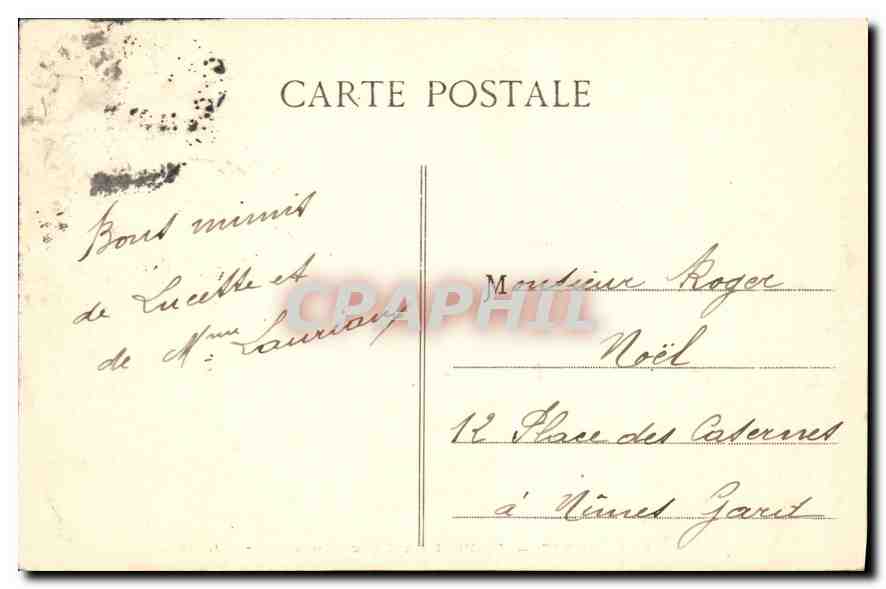 CARTE POSTALE
Bons mimis
de Lucette et
de Mme
Monsieur Roger
Noël
12 Place des Casernes
à Nîmes Gard
CPAPHIL